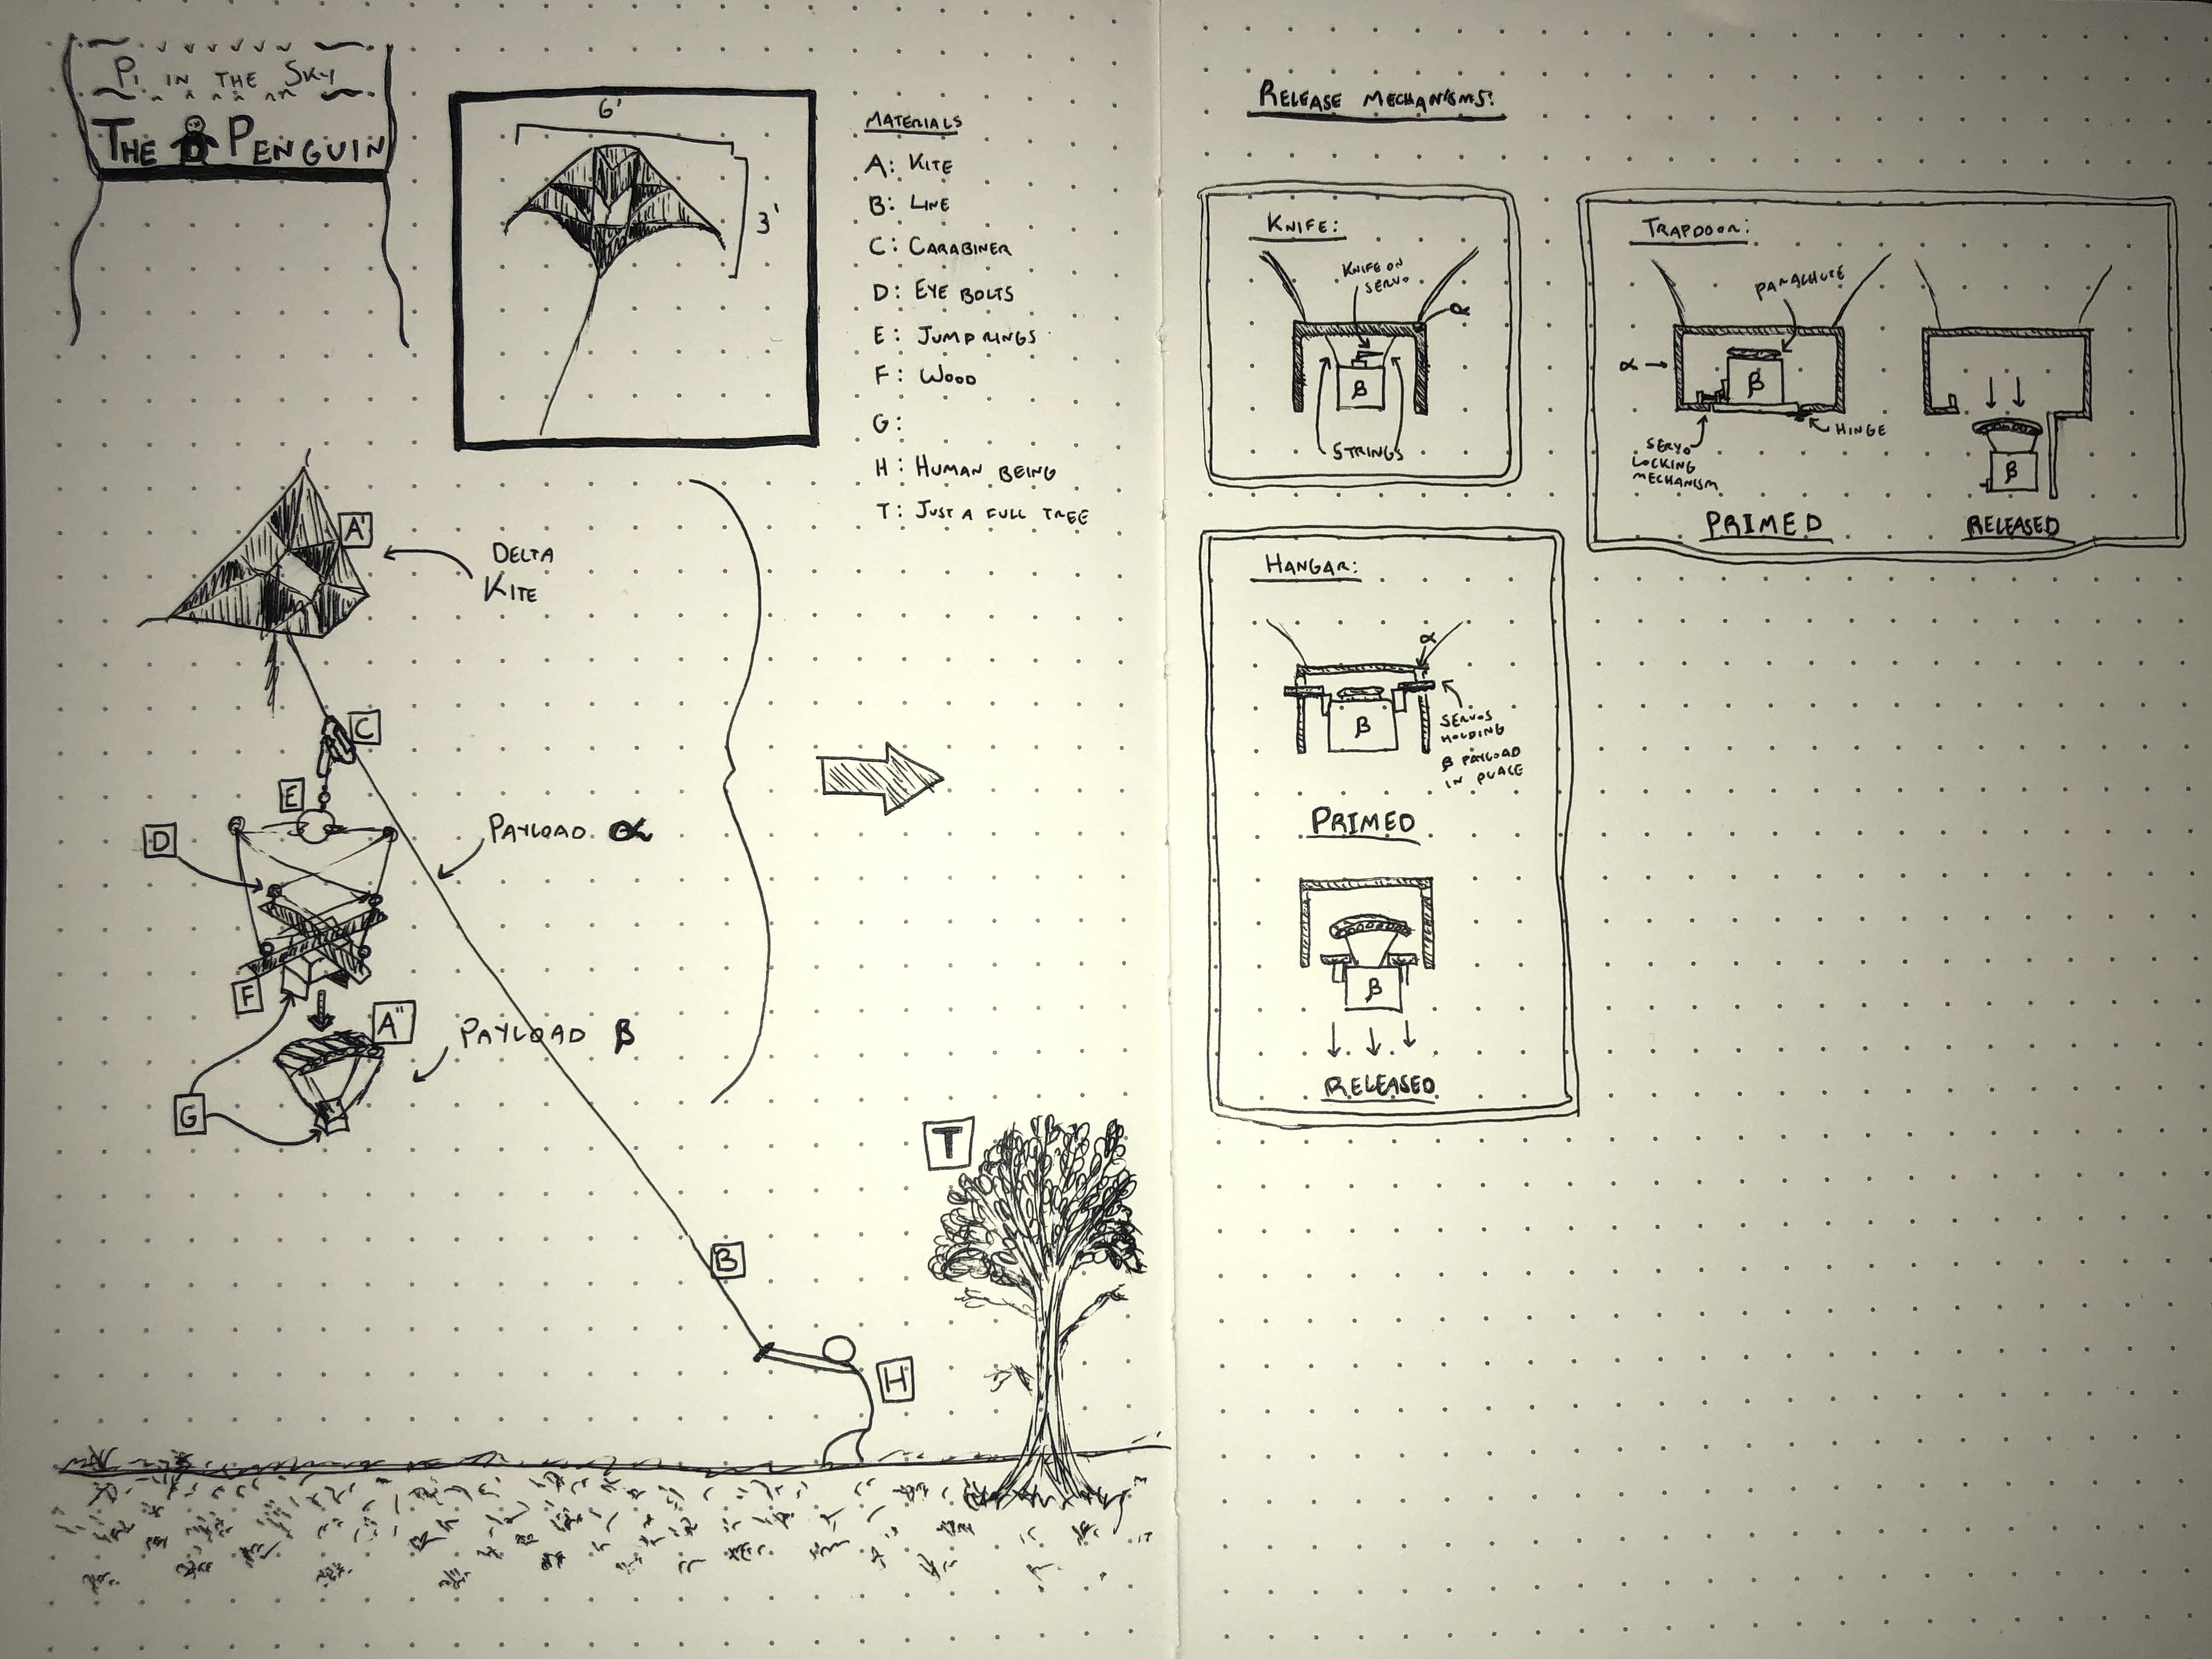 Pi in the Sky
The Penguin
6'
3'
Materials
A: Kite
B: Line
C: Carabiner
D: Eye bolts
E: Jump rings
F: Wood
G:
H: Human being
T: Just a full tree
A'
Delta
Kite
C
E
D
Payload α
F
A"
Payload β
G
T
B
H
Release Mechanisms:
Knife:
Knife on
servo
α
β
Strings
Trapdoor:
Parachute
α
β
Hinge
Servo
locking
mechanism
Primed
β
Released
Hangar:
α
β
Servos
holding
β payload
in place
Primed
β
Released